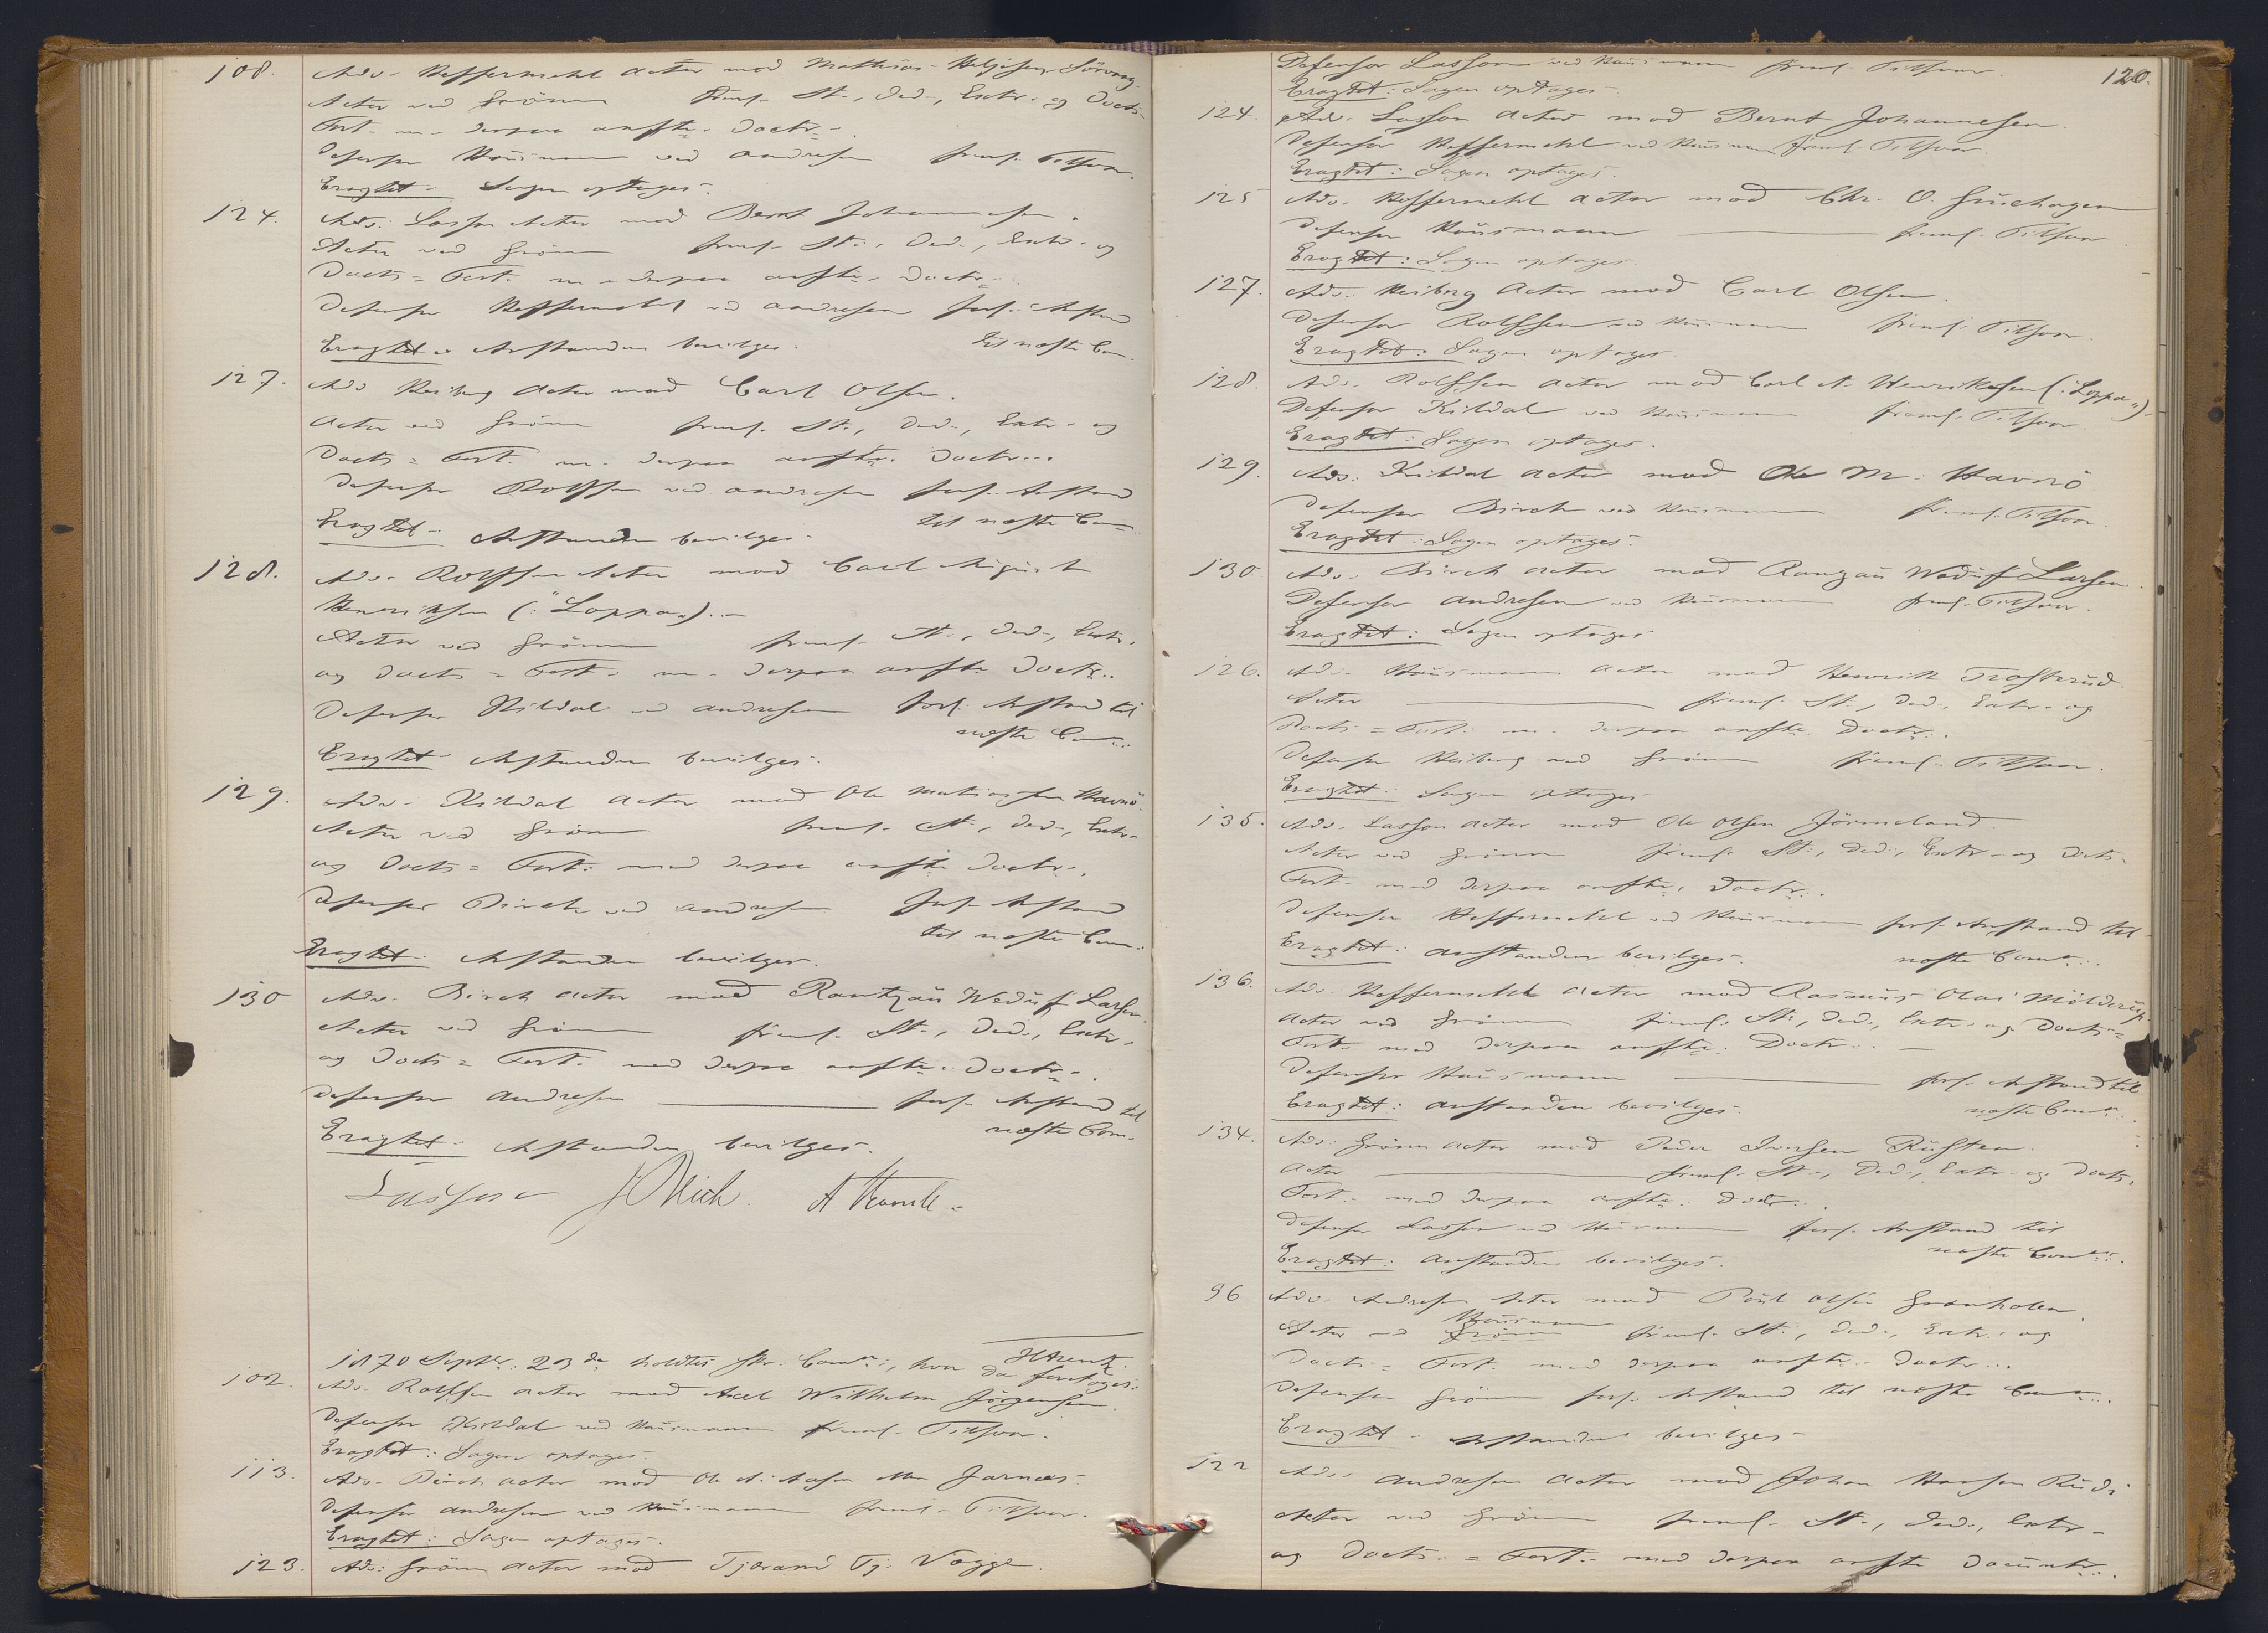 108. Adv. Heffermehl Actor mod Mathias Heljesen Sörvaag.
Actor ved Grönn freml. St., Ded., Extr. og Docts-
Fort. m. derpaa anfte. Doctr.
Defensor Hausmann ved Andresen freml. Tilsvar.
Eragtet: Sagen optages.
124. Adv. Lasson Actor mod Bernt Johannesen.
Actor ved Grönn freml. St., Ded., Extr. og
Docts = Fort. m. derpaa anfte. Doctr.
Defensor Heffermehl ved Andresen forl. Anstand
til næste Con.
Eragtet: Anstanden bevilges.
127. Adv. Heiberg Actor mod Carl Olsen.
Actor ved Grönn freml. St., Ded., Extr. og
Docts = Fort. m. derpaa anfte. Doctr...
Defensor Rolffsen ved Andresen forl. Anstand
til næste Con.
Eragtet: Anstanden bevilges.
128. Adv. Rolffsen Actor mod Carl August
Henriksen (:"Loppa"). -
Actor ved Grönn freml. St., Ded., Extr.
og Docts = Fort. m. derpaa anfte Doctr..
Defensor Kildal ved Andresen forl. Anstand til
næste Con..
Eragtet Anstanden bevilges.
129. Adv. Kildal Actor mod Ole Mathiassen Havnö.
Actor ved Grönn freml. St., Ded., Extr.
og Docts = Fort. med derpaa anfte Doctr.
Defensor Birch ved Andresen forl. Anstand
til næste Con..
Eragtet: Anstanden bevilges.
130 Adv. Birch Actor mod Rantzau Weduf Larsen.
Actor ved Grönn freml. St., Ded., Extr.
og Docts = Fort. med derpaa anfte. Doctr.
Defensor Andresen ——— forl. Anstand til
næste Con.
Eragtet: Anstanden bevilges.
Lasson
H Arentz.
1870 Septbr. 23de holdtes Conv., hvor da foretoges:
102. Adv. Rolffsen Actor mod Axel Wilhelm Jörgensen.
Defensor Kildal ved Hausmann freml. Tilsvar.
Eragtet: Sagen optages.
113. Adv. Birch Actor mod Ole A. Jarnæs.
Defensor Andresen ved Hausmann freml. Tilsvar.
Eragtet: Sagen optages.
123. Adv. Grönn Actor mod Tjærand Tj. Vagge.
120.
Defensor Lasson ved Hausmann freml. Tilsvar.
Eragtet: Sagen optages.
124. Adv. Lasson Actor mod Bernt Johannesen.
Defensor Heffermehl ved Hausmann freml. Tilsvar.
Eragtet: Sagen optages.
125 Adv. Heffermehl Actor mod Chr. O. Gruehagen
Defensor Hausmann ——— freml. Tilsvar
Eragtet: Sagen optages.
127. Adv. Heiberg Actor mod Carl Olsen.
Defensor Rolffsen ved Hausmann freml. Tilsvar.
Eragtet: Sagen optages.
128. Adv. Rolffsen Actor mod Carl A. Henriksen (:"Loppa").
Defensor Kildal ved Hausmann freml. Tilsvar.
Eragtet: Sagen optages.
129. Adv. Kildal Actor mod Ole M. Havnö
Defensor Birch ved Hausmann freml. Tilsvar.
Eragtet: Sagen optages.
130 Adv. Birch Actor mod Ranzau Weduf Larsen.
Defensor Andresen ved Hausmann freml. Tilsvar.
Eragtet: Sagen optages
126. Adv. Hausmann Actor mod Henrik Trosterud.
Actor ——— freml. St., Ded., Extr. og
Docts = Fort. m. derpaa anfte. Doctr..
Defensor Heiberg ved Grönn freml. Tilsvar.
Eragtet: Sagen optages
135. Adv. Lasson Actor mod Ole Olsen Jörmeland.
Actor ved Grönn freml. St., Ded., Extr. og Docts-
Fort. med derpaa anfte. Doctr..
Defensor Heffermehl ved Hausmann forl. Anstand til
næste Conv...
Eragtet: Anstanden bevilges.
136. Adv. Heffermehl Actor mod Rasmus Olai Mölderup.
Actor ved Grönn freml. St., Ded., Extr. og Docts=
Fort. med derpaa anfte. Doctr...
Defensor Hausmann ——— forl. Anstand til
næste Conv..
Eragtet: Anstanden bevilges.
134. Adv. Grönn Actor mod Peder Iversen Rusten.
Actor ——— freml. St., Ded., Extr. og Docts.
Fort. med derpaa anfte. Doctr..
Defensor Lasson ved Hausmann forl. Anstand til
næste Conv..
Eragtet: Anstanden bevilges.
96 Adv. Andresen Actor mod Poul Olsen Grönholen.
Hausmann
Actor ved Grönn freml. St., Ded., Extr. og
Docts = Fort. med derpaa anfte. Doctr...
Defensor Grönn forl. Anstand til næste Conv..
Eragtet - Anstanden bevilges.
122 Adv. Andresen Actor mod Johan Hansen Rud.
Actor ved Grönn freml. St., Ded., Extr.
og Docts. = Fort. med derpaa anfte Documtr..